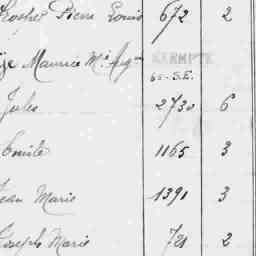 Pierre Louis 672 2
Maurice Mie Aug EXEMPTE
65-S.E.
Jules 2730 6
Emile 1165 3
Jean Marie 1391 3
Joseph Marie 721 2